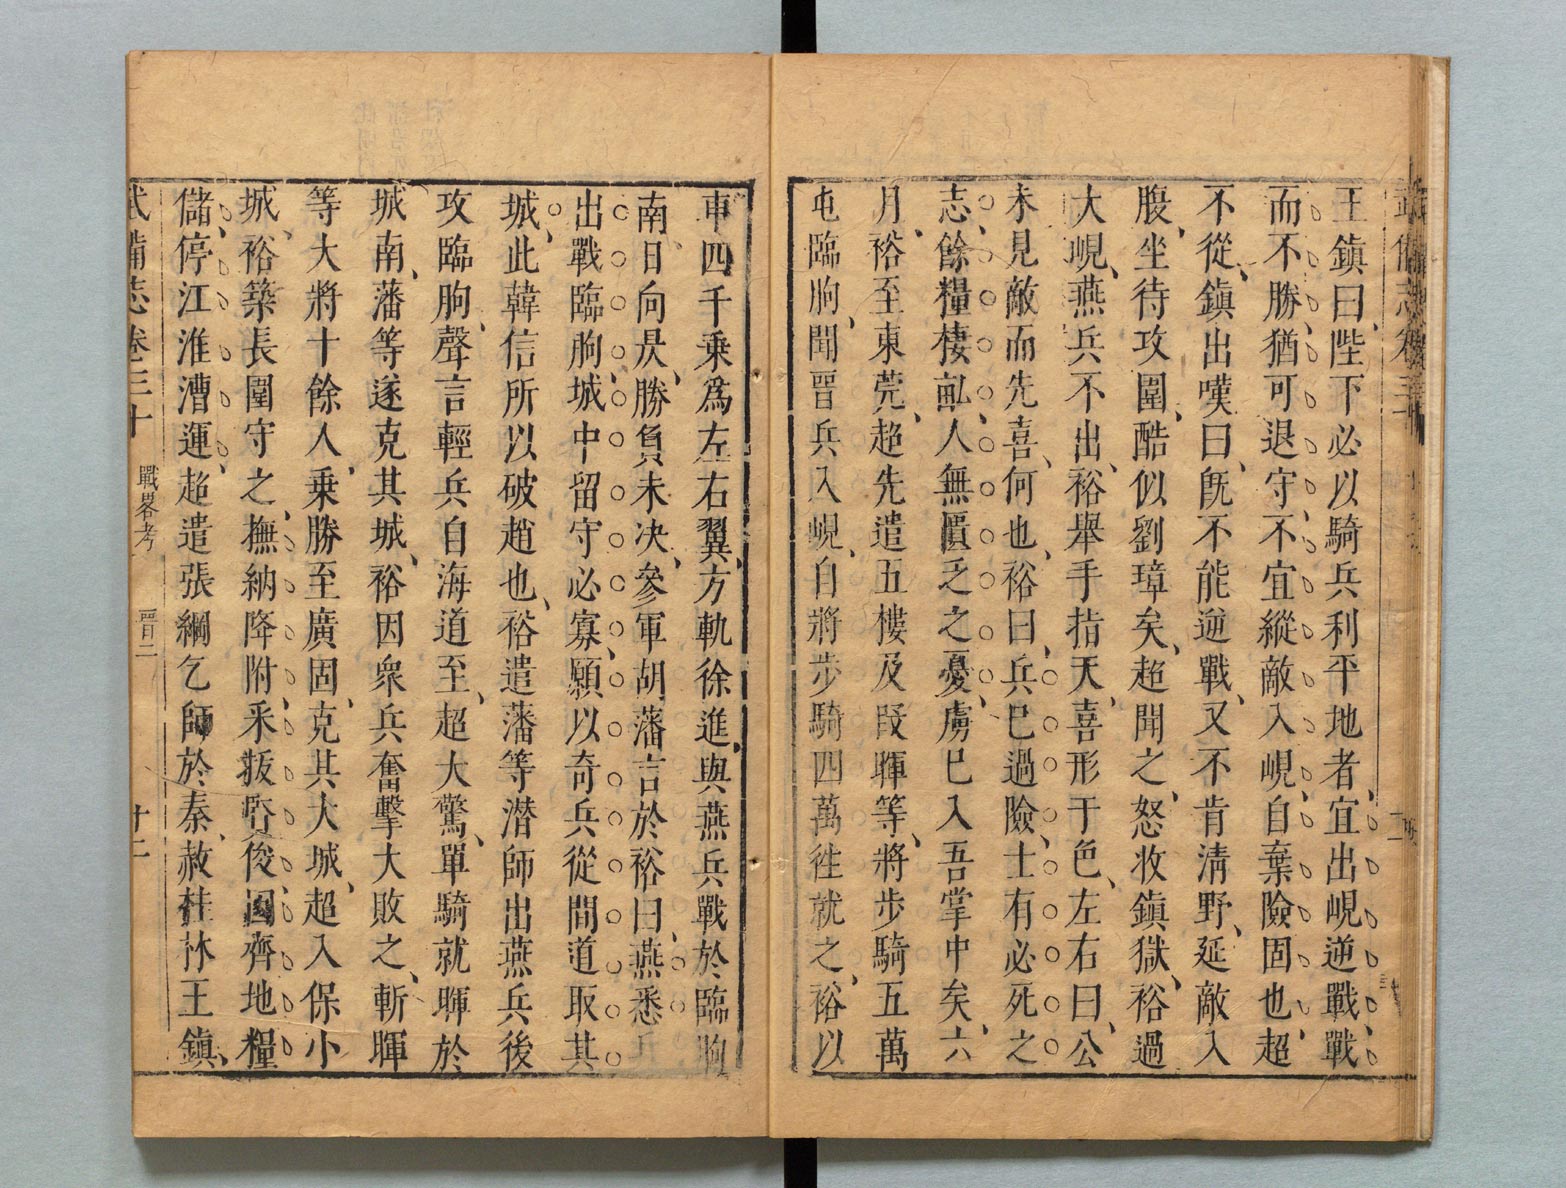 王鎮曰陛下必以騎兵利平地者宜出峴逆戰戰
而不勝猶可退守不宜縱敵入峴自棄險固也超
不從鎮出嘆曰旣不能逆戰又不肯清野延敵入
腹坐待攻圍酷似劉璋矣超聞之怒收鎮獄裕過
大峴燕兵不出裕舉手指天喜形于色左右曰公
未見敵而先喜何也裕曰兵已過險士有必死之
志餘糧棲畆人無匱乏之憂虜已入吾掌中矣六
月裕至東莞超先遣五樓及段暉等將步騎五萬
屯臨朐聞晉兵入峴自將步騎四萬徃就之裕以
車四千乗爲左右翼方軌徐進與燕兵戰於臨朐
南日向昃勝負未决參軍胡藩言於裕曰燕悉兵
出戰臨朐城中留守必寡願以奇兵從間道取其
城此韓信所以破趙也裕遣藩等潜師出燕兵後
攻臨朐聲言輕兵自海道至超大驚單騎就暉於
城南藩等遂克其城裕因衆兵奮擊大敗之斬暉
等大將十餘人乗勝至廣固克其大城超入保小
城裕築長圍守之撫納降附采拔賢俊因齊地糧
儲停江淮漕運超遣張綱乞師於秦赦桂林王鎮
武備志卷三十 戰畧考 晉二 廿二